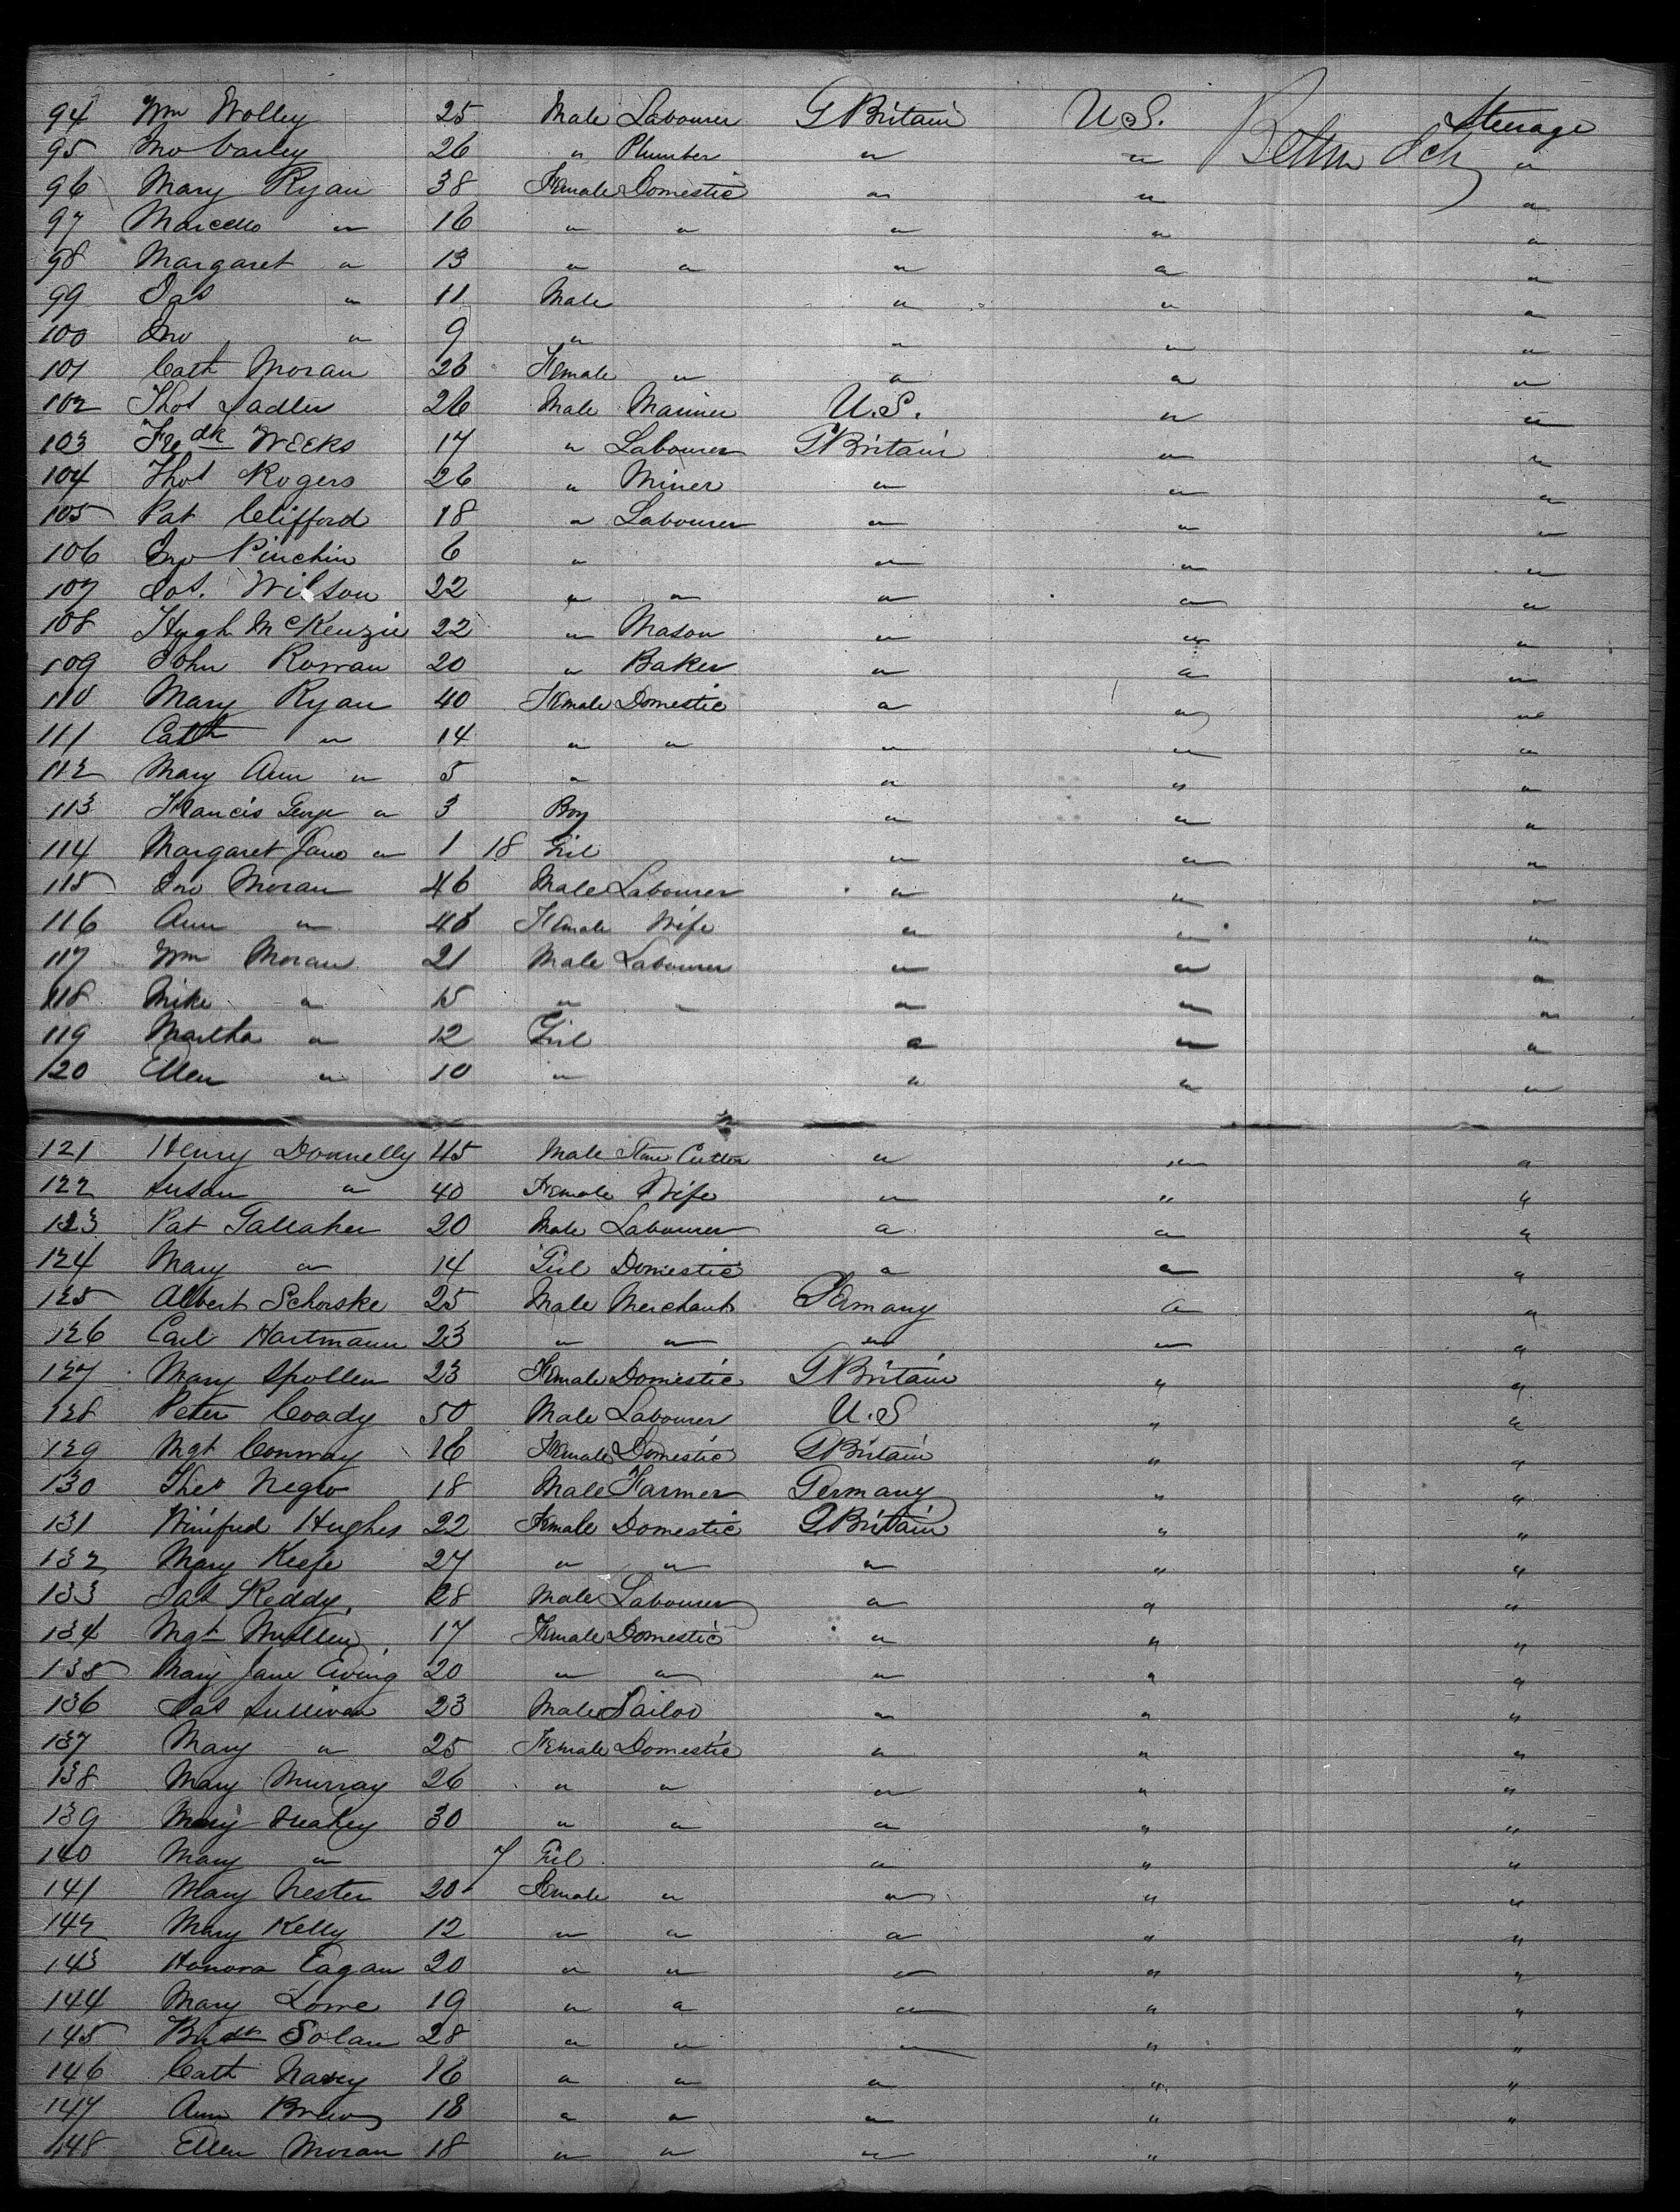 94 Wm Wolley 25 Male Labourer G Britain U.S. Steerage
95 Jno Varley 26 " Plumber " " "
96 Mary Ryan 38 Female Domestic " " "
97 Marcello " 16 " " " " "
98 Margaret " 13 " " " " "
99 Jas " 11 Male " " "
100 Jno " 9 " " " "
101 Cath Moran 26 Female " " " "
102 Thos Sadler 26 Male Mariner U.S. " "
103 Fredk Weeks 17 " Labourer G Britain " "
104 Thos Rogers 26 " Miner " " "
105 Pat Clifford 18 " Labourer " " "
106 Jno Pinchin 6 " " " "
107 Jos. Wilson 22 " " " " "
108 Hugh McKenzie 22 " Mason " " "
109 John Rowan 20 " Baker " " "
110 Mary Ryan 40 Female Domestic " " "
111 Cath " 14 " " " " "
112 Mary Ann " 5 " " " "
113 Francis George " 3 Boy " " "
114 Margaret Jane " 1 18 Girl " " "
115 Jno Moran 46 Male Labourer " " "
116 Ann " 46 Female Wife " " "
117 Wm Moran 21 Male Labourer " " "
118 Mike " 15 " " " " "
119 Martha " 12 Girl " " "
120 Ellen " 10 " " " "
121 Henry Donnelly 45 Male Stone Cutter " " "
122 Susan " 40 Female Wife " " "
123 Pat Gallaher 20 Male Labourer " " "
124 Mary " 14 Girl Domestic " " "
125 Albert Schorske 25 Male Merchant Germany " "
126 Carl Hartmann 23 " " " " "
127 Mary Spollen 23 Female Domestic G Britain " "
128 Peter Coady 50 Male Labourer U.S " "
129 Mgt Conway 16 Female Domestic G Britain " "
130 Negro 18 Male Farmer Germany " "
131 Winifred Hughes 22 Female Domestic G Britain " "
132 Mary Keefe 27 " " " " "
133 Jas Reddy 28 Male Labourer " " "
134 Mgt Mullen 17 Female Domestic " " "
135 Mary Jane Ewing 20 " " " " "
136 Jas Sullivan 23 Male Sailor " " "
137 Mary " 25 Female Domestic " " "
138 Mary Murray 26 " " " " "
139 Mary 30 " " " " "
140 Mary " 7 Girl " " "
141 Mary Nester 20 Female " " " "
142 Mary Kelly 12 " " " " "
143 Honora Eagan 20 " " " " "
144 Mary Lowe 19 " " " " "
145 Solan 28 " " " " "
146 Cath 16 " " " " "
147 Ann 18 " " " " "
148 Ellen Moran 18 " " " "